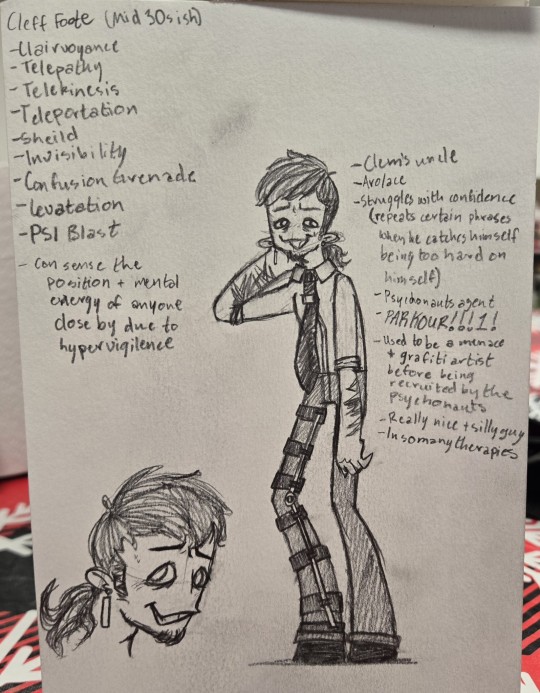 Cleff Foote (Mid 30sish)
-Clairvoyance
-Telepathy
-Telekinesis
-Teleportation
-Sheild
-Invisibility
-Confusion Grenade
-levatation
-PSI Blast
- Can sense the
position + mental
energy of anyone
close by due to
hypervigilence
-Clem's uncle
-Aro/ace
-Struggles with confidence
(repeats certain phrases
when he catches himself
being too hard on
himself)
-Psychonauts agent
-PARKOUR!!!1!
-Used to be a menace
+ grafiti artist
before being
recruited by the
psychonauts
-Really nice + silly guy
-In so many therapies